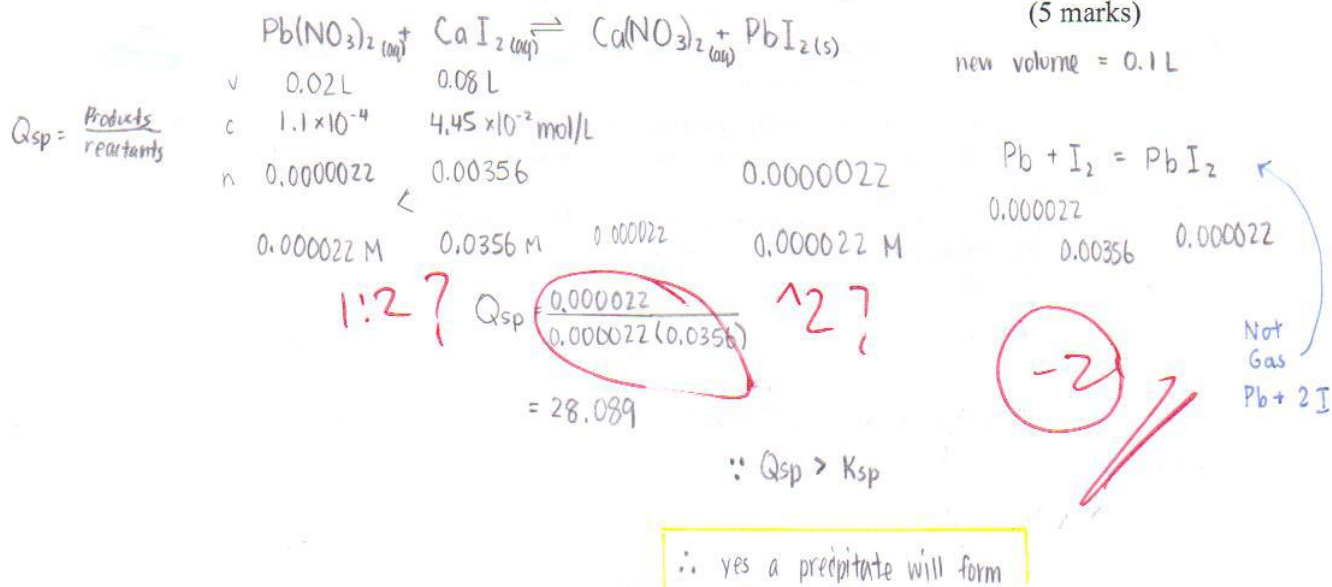 (5 marks)
Pb(NO3)2 (aq) + CaI2 (aq) ⇌ Ca(NO3)2 (aq) + PbI2(s)
new volume = 0.1 L
v 0.02L 0.08 L
Qsp = Products / reactants
c 1.1×10⁻⁴ 4.45 ×10⁻² mol/L
Pb + I2 = PbI2
n 0.0000022 0.00356 0.0000022
<
0.000022 0.00356 0.000022
0.000022 M 0.0356 M 0.000022 0.000022 M
1:2? Qsp = 0.000022 / 0.000022 (0.0356) ^2?
-2
Not
Gas
Pb + 2 I
= 28.089
∵ Qsp > Ksp
∴ yes a precipitate will form